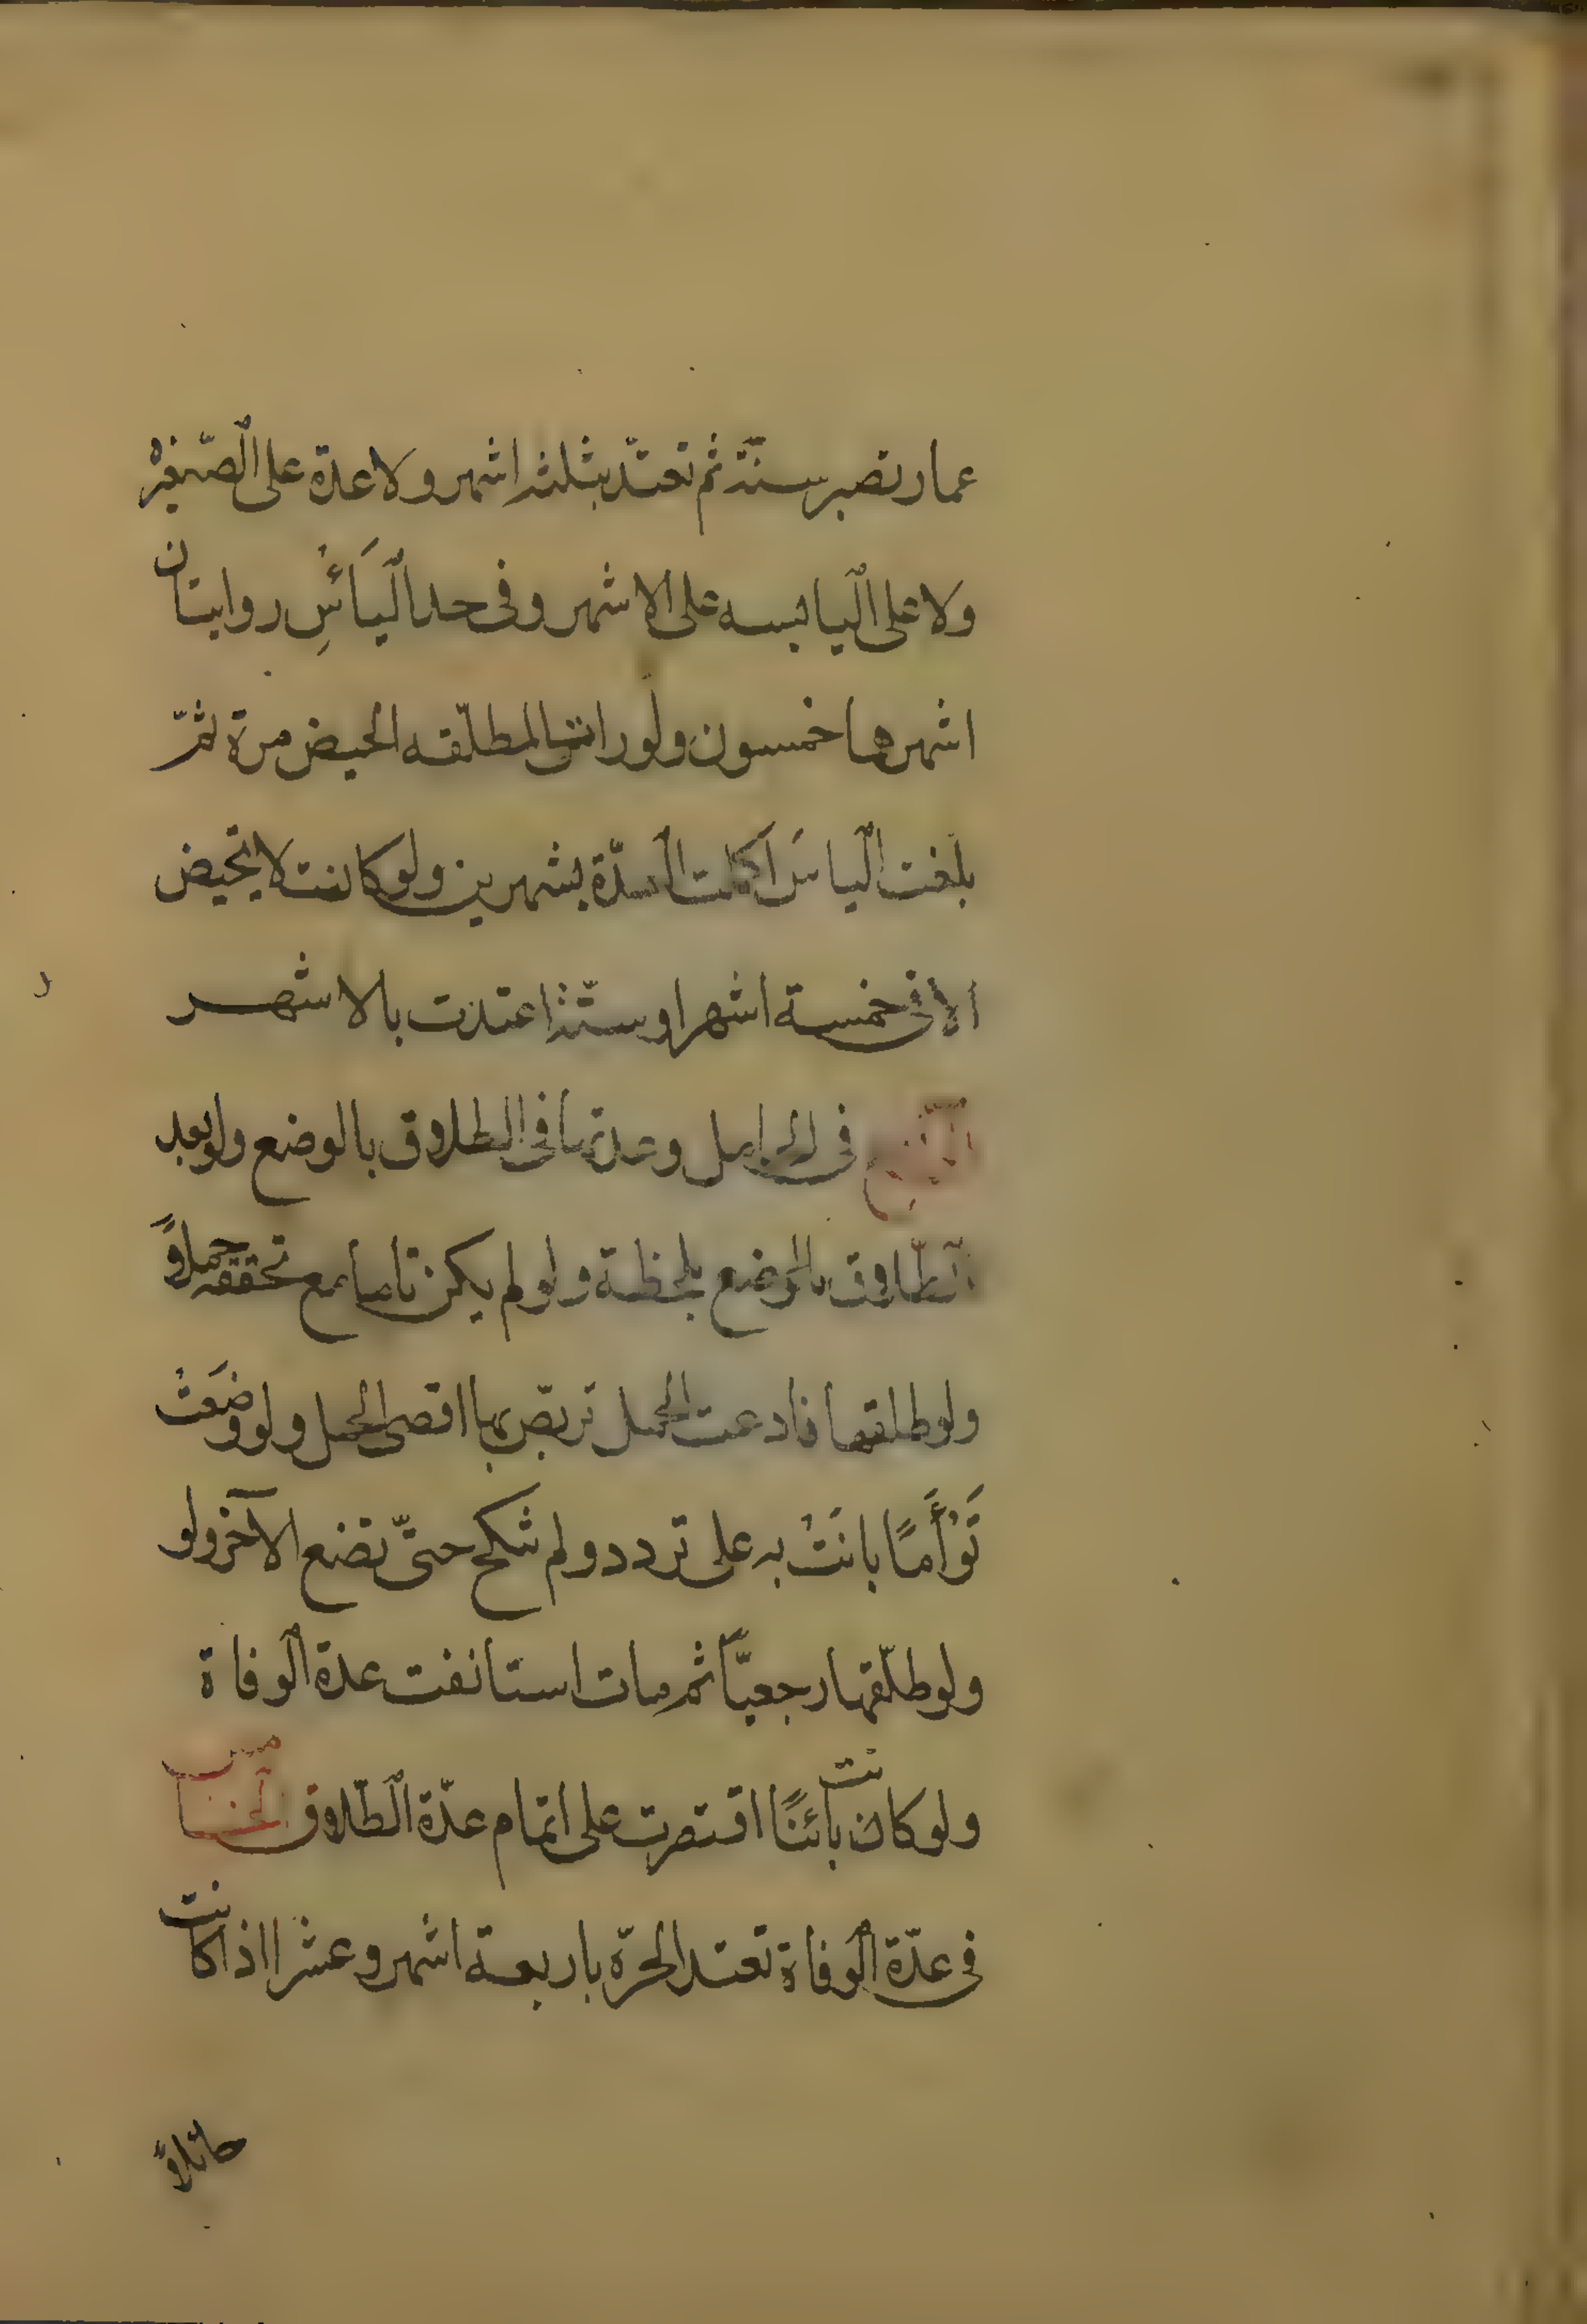 عمار تصبر سنَةً ثم تعتدّ بثلثة اشهر ولا عدة على الصّغيرْة
ولا على اليايسه على الاشهر وفى حد اليَائسِ روايتان
اشهرهما خمسون ولو رات المطلّقه الحيض مرة ثمّ
بلغت الياسَ اكملت العدّة بشهرين ولو كانت لا تحيض
الا فى خمسة اشهر او ستّة اعتدت بالاشهر
الرّابع فى الحامل وعدتها فى الطلاق بالوضع ولو بعد
الطّلاق بالوضع بلحظة ولو لم يكن تاما مع تحققه حملاً
ولو طلقها فادعت الحمل تربّص بها اقصى الحمل ولو وضَعَتْ
تَوْأَمًا بانَتْ به على تردد ولم تنكح حتىّ تضع الآخر ولو
ولو طلّقها رجعيّاً ثم مات استانفت عدة الوفاة
ولو كانت بائنًا اقتصرت على اتمام عدّة الطّلاق الخامس
فى عدّة الوفاة تعتد الحرّة باربعة اشهر وعشرا اذا كانت
حائلاً